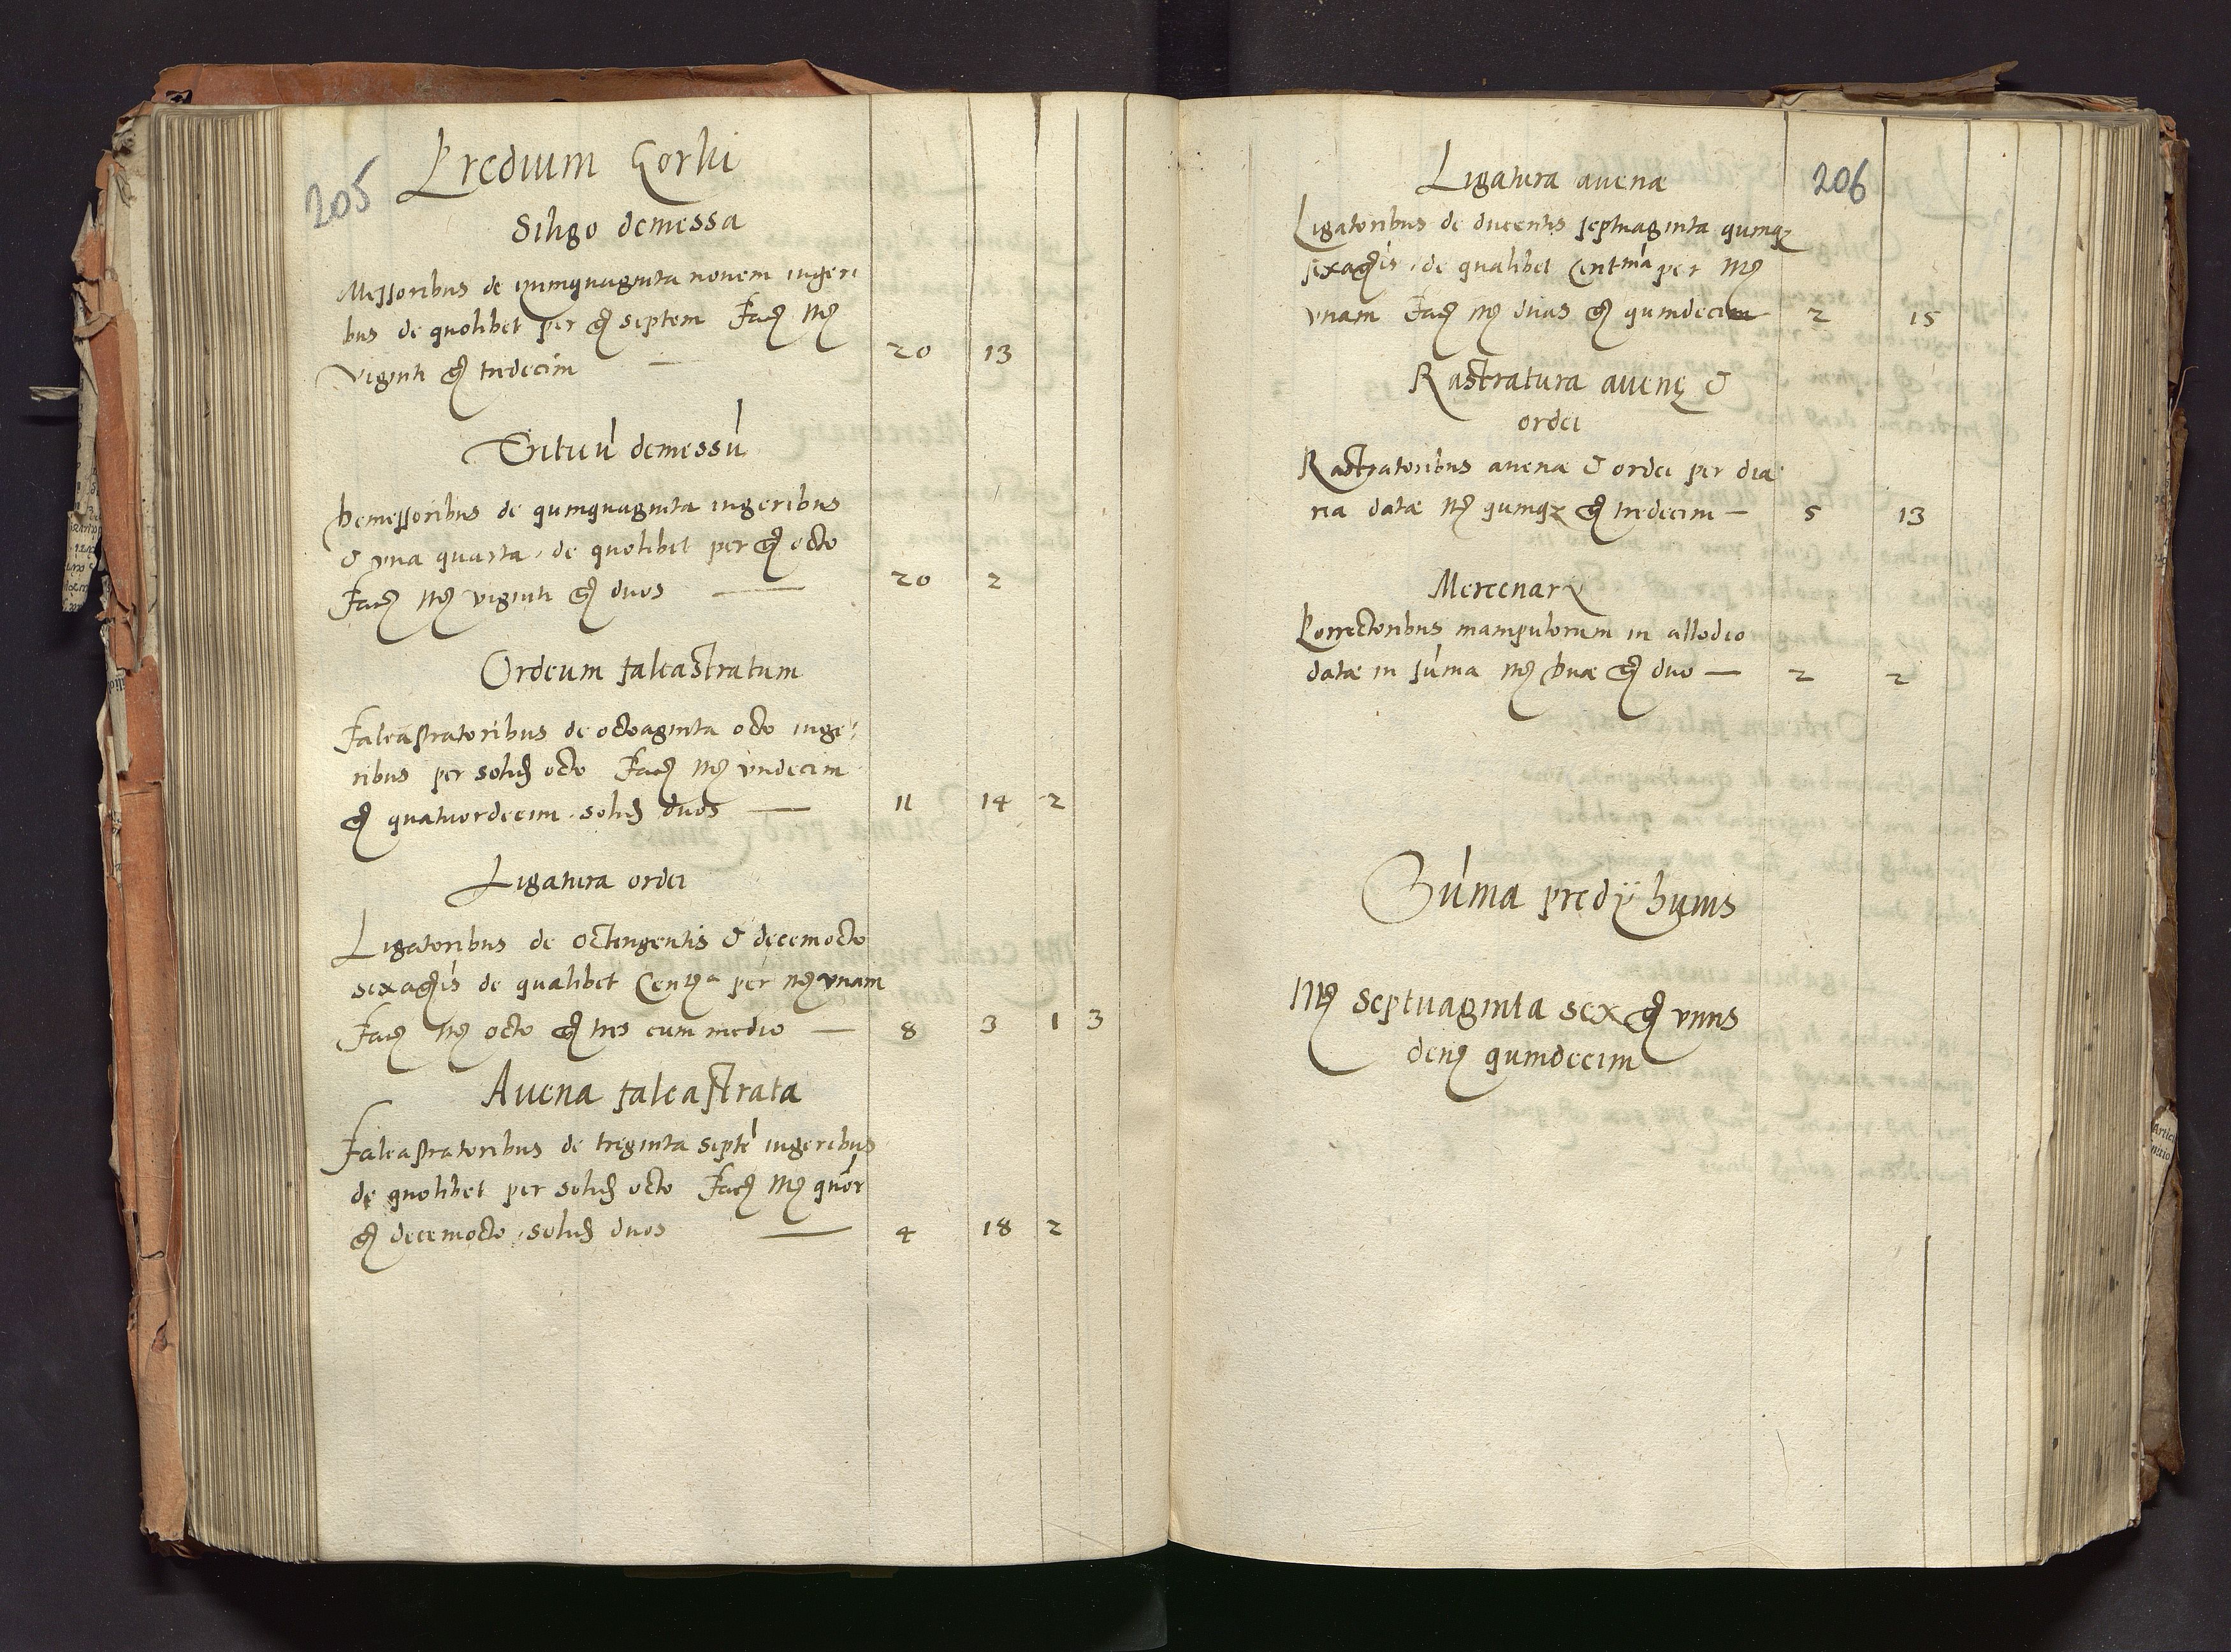 205
Predium Gorki
Siligo demessa
Messoribus de quinquaginta novem iugeri
bus de quolibet per gr septem Facit mr
viginti gr tredecim — 20 13
Triticū demessū
Demessoribus de quinquaginta iugeribus
& vna quarta, de quolibet per gr octo
Facit mr viginti gr duos — 20 2
Ordeum falcastratum
Falcastratoribus de octoaginta octo iuge-
ribus per solid octo Facit mr vndecim
gr quatuordecim solid duos — 11 14 2
Ligatura ordei
Ligatoribus de octingentis & decemocto
sexagenis de qualibet Centena per mr vnam
Facit mr octo gr tres cum medio — 8 3 1 3
Auena falcastrata
Falcastratoribus de treginta septē iugeribus
de quolibet per solid octo Facit mr quor
gr decemocto solid duos — 4 18 2
206
Ligatura auenæ
Ligatoribus de ducentis septuaginta quinqz
sexagenis, de qualibet Centma per mr
vnam Facit mr duas gr quindecim 2 15
Rastratura auenę &
ordei
Rastratoribus auenæ & ordei per dia
ria datæ mr quinqz gr tredecim — 5 13
Mercenarÿ
Porrectoribus manipulorum in allodio
datæ in sūma mr duæ gr duo — 2 2
Sūma predÿ huius
Mr septuaginta sex gr vnus
den quindecim